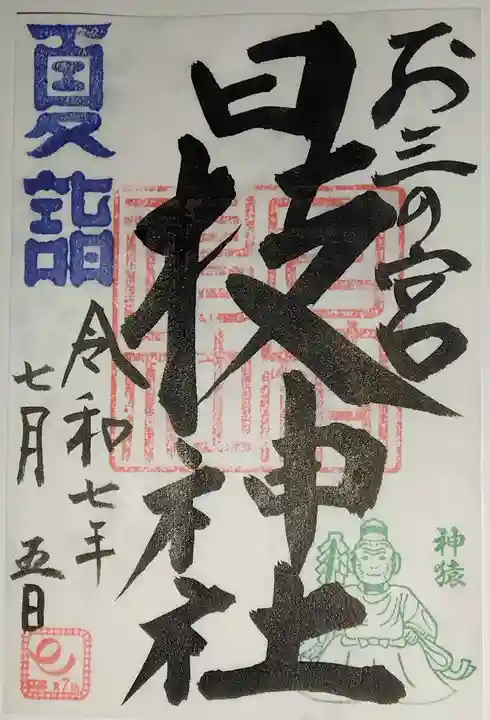 お三の宮
日枝神社
夏詣
令和七年
七月五日
神猿
R7th